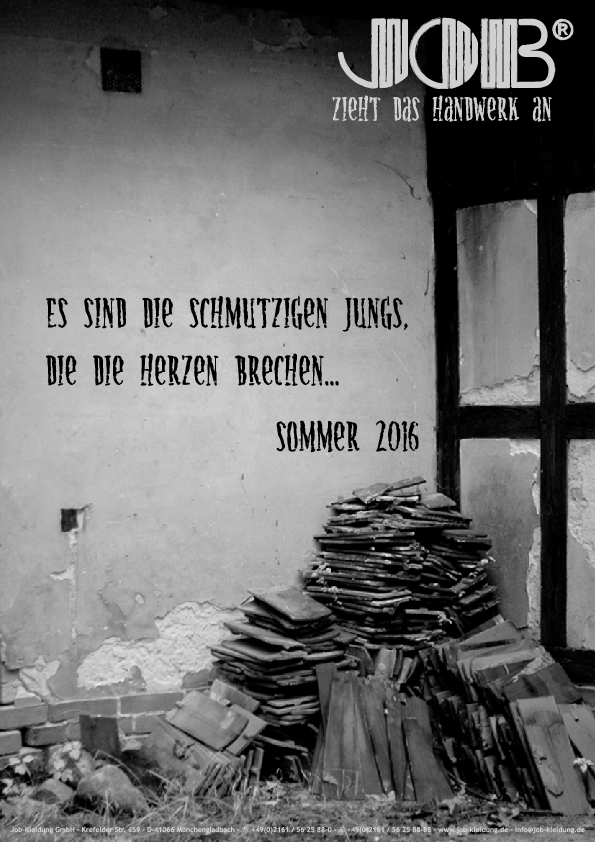 JOB®
ZIEHT DAS HANDWERK AN
ES SIND DIE SCHMUTZIGEN JUNGS,
DIE DIE HERZEN BRECHEN...
SOMMER 2016
Job-Kleidung GmbH - Krefelder Str. 659 - D-41066 Mönchengladbach - +49(0)2161 / 56 25 88-0 - +49(0)2161 / 56 25 88-88 - www.job-kleidung.de - info@job-kleidung.de